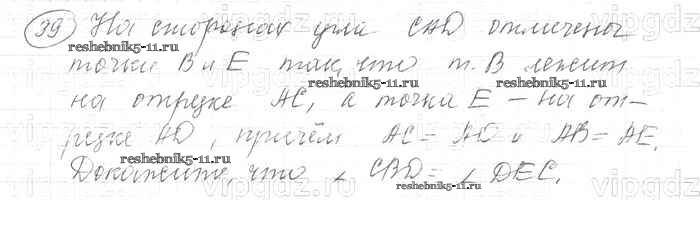 39 На сторонах угла CAD отмечены
reshebnik5-11.ru
точки B и E так, что т. B лежит
reshebnik5-11.ru
на отрезке AC, а точка E – на от-
резке AD, причём AC = AD и AB = AE.
reshebnik5-11.ru
Докажите, что ∠ CBD = ∠ DEC.
reshebnik5-11.ru